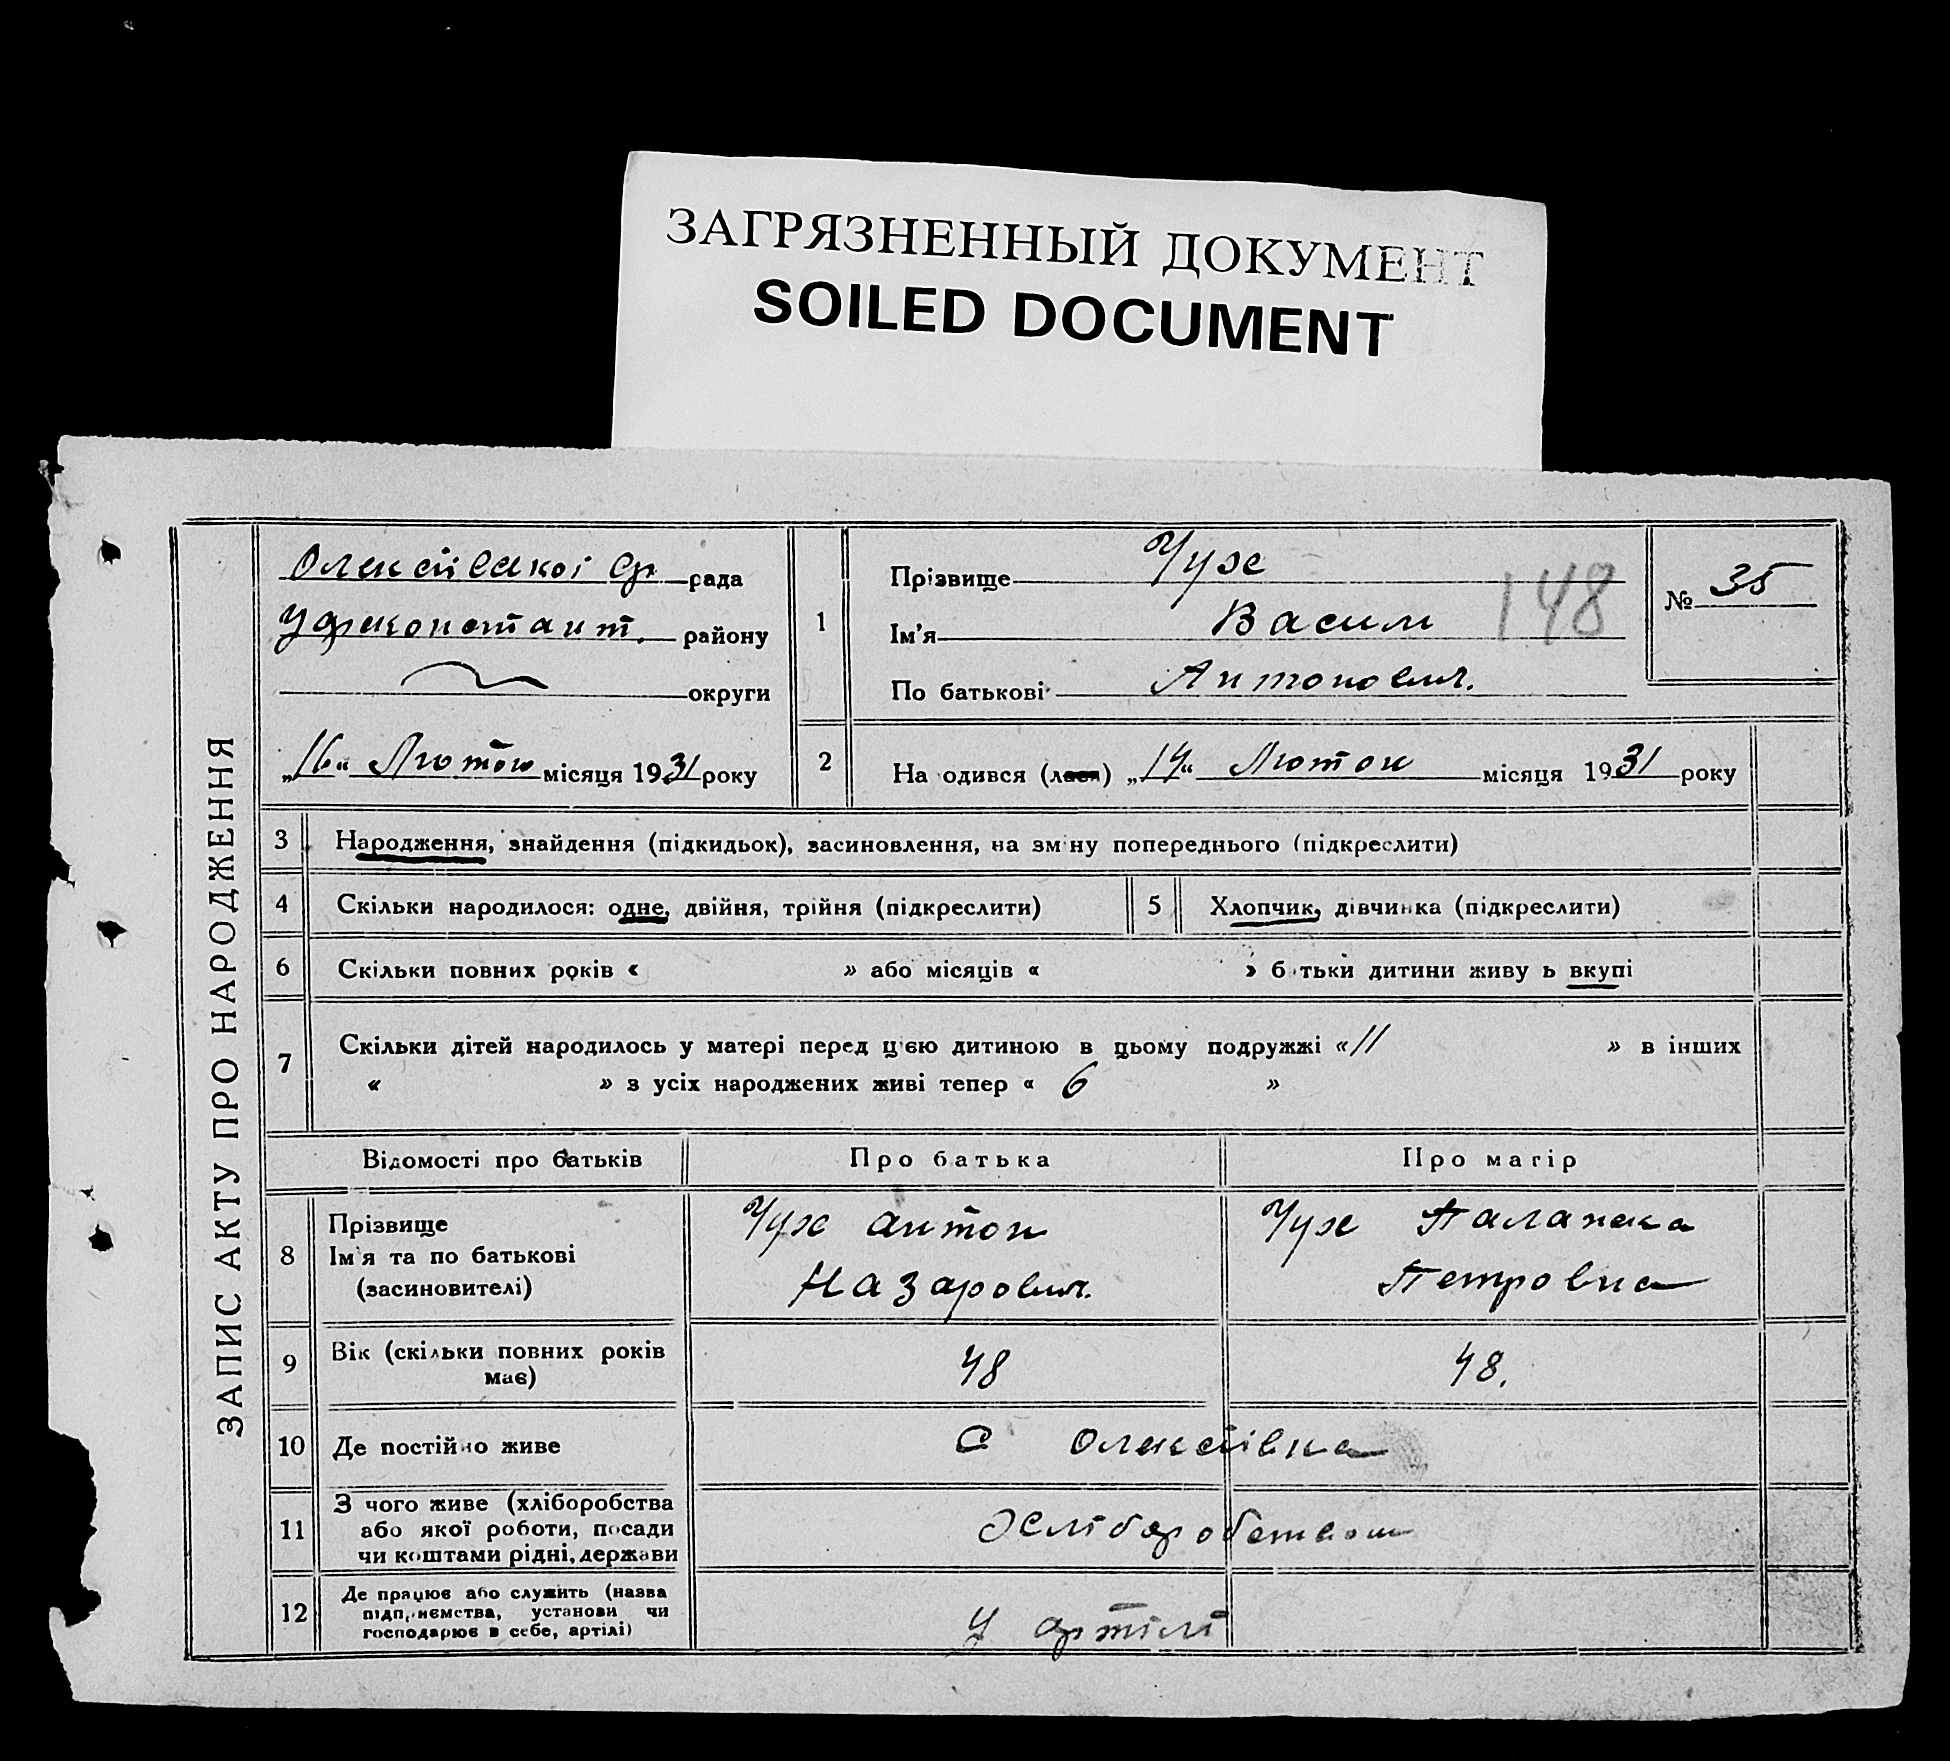 ЗАГРЯЗНЕННЫЙ ДОКУМЕНТ
SOILED DOCUMENT
ЗАПИС АКТУ ПРО НАРОДЖЕННЯ
Олексіївкої ср рада
району
округи
„16“ Лютого місяця 1931 року
1
Прізвище Чух
Ім'я Васили
По батькові Антонович.
148
№ 35
2
На одився (лася) „14“ Лютого місяця 1931 року
3 Народження, знайдення (підкидьок), засиновлення, на зм ну попереднього (підкреслити)
4 Скільки народилося: одне, двійня, трійня (підкреслити)
5 Хлопчик, дівчинка (підкреслити)
6 Скільки повних років « » або місяців « » б тьки дитини живу ь вкупі
7 Скільки дітей народилось у матері перед цією дитиною в цьому подружжі «11 » в інших
« » з усіх народжених живі тепер « 6 »
Відомості про батьків Про батька Про матір
8 Прізвище
Ім'я та по батькові
(засиновителі)
Чух Антон
Назарович.
Чух Палажка
Петровна
9 Вік (скільки повних років
має)
48 48.
10 Де постійно живе С Олексіївка
11 З чого живе (хліборобства
або якої роботи, посади
чи коштами рідні, держави
Хліборобством
12 Де працює або служить (назва
підприємства, установи чи
господарює в себе, артілі)
У артілі